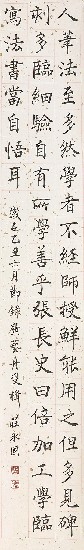 人筆法至多然學者不經師授鮮能用之但多見碑
刻多臨細驗自有所學善乎張長史曰倍加工學臨
寫法書當自悟耳
歲在乙丑二月節錄廣藝舟雙楫 莊永固